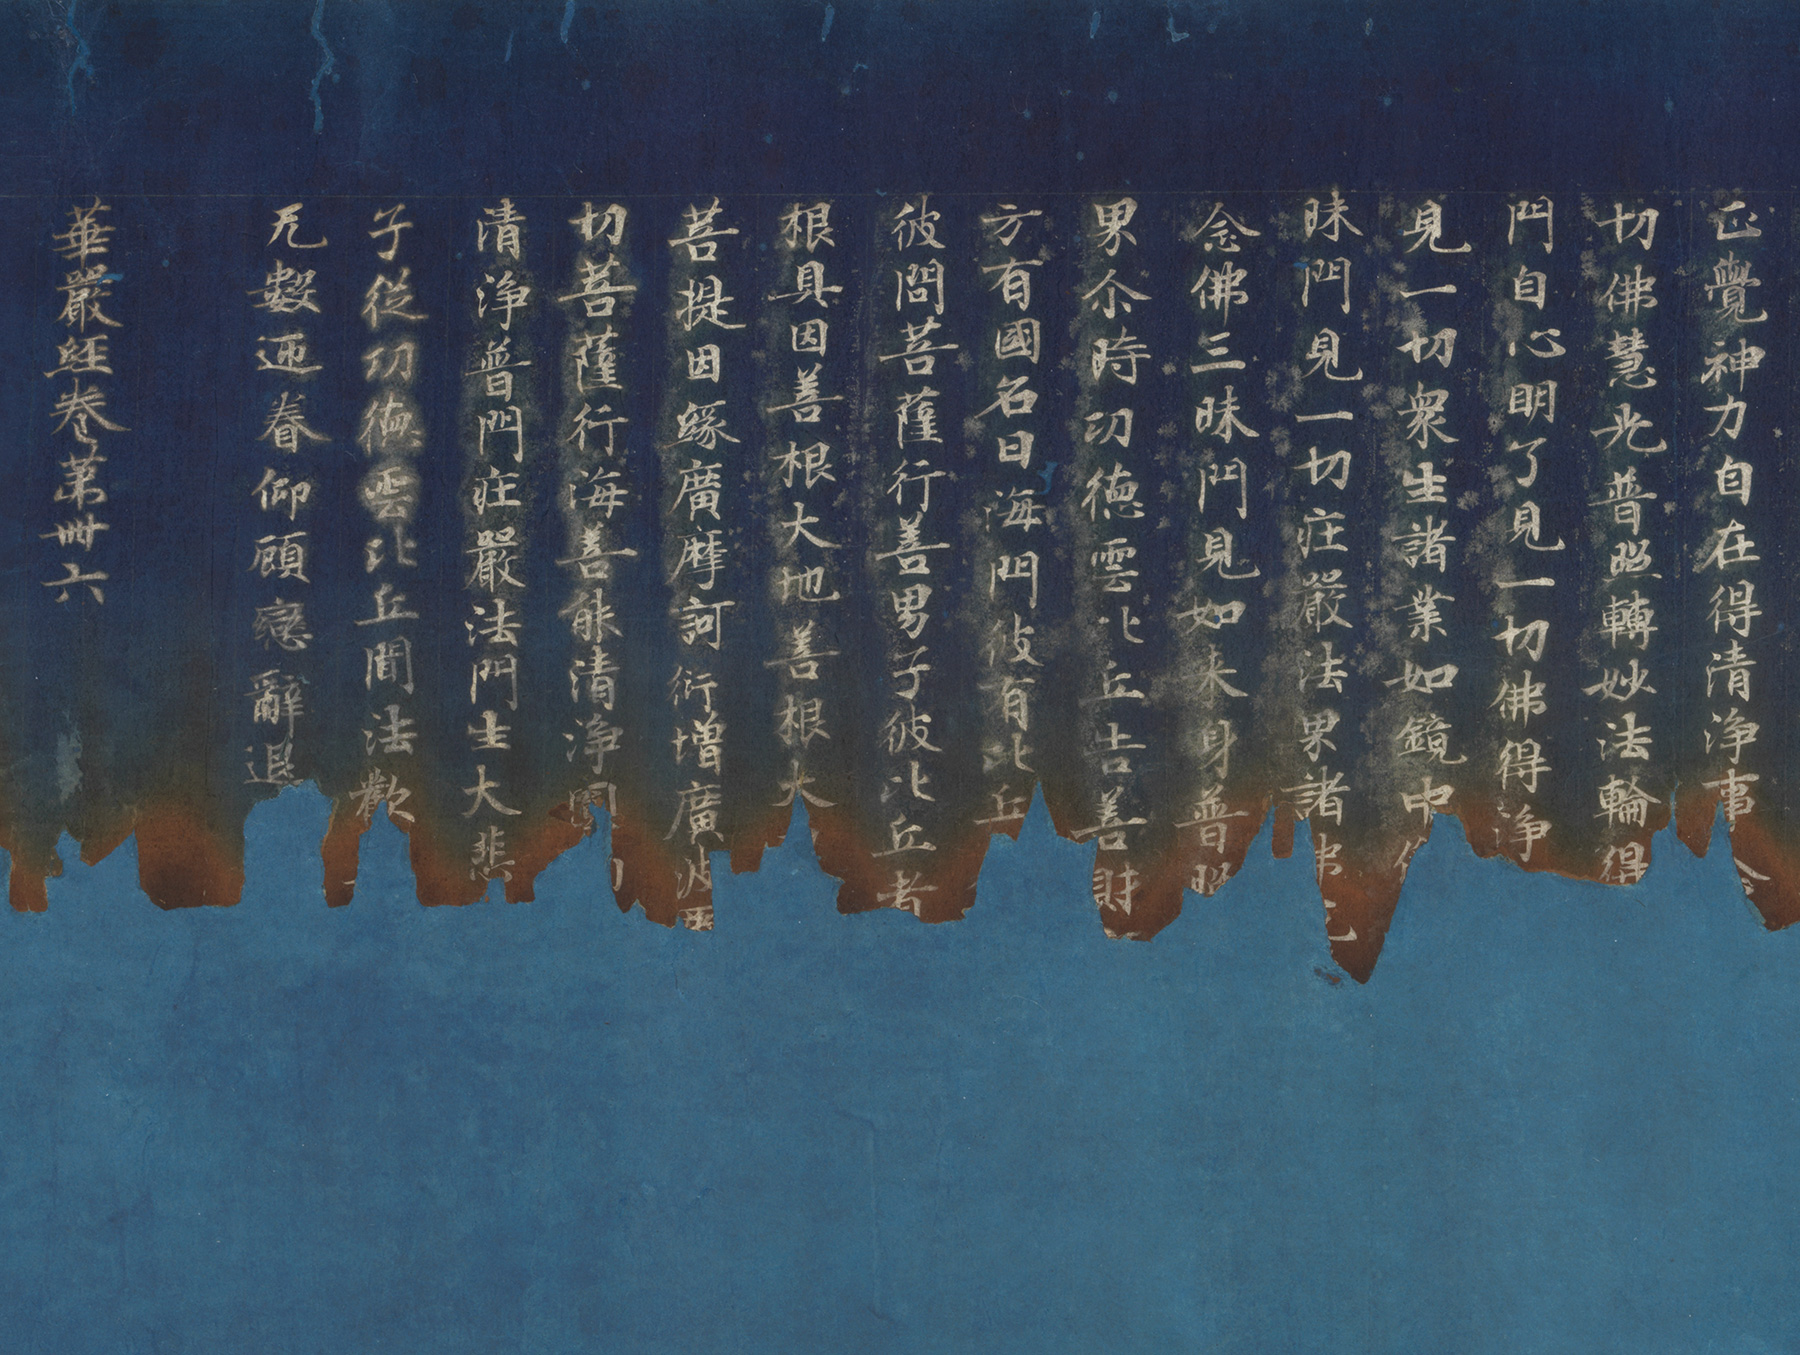 正覺神力自在得清淨事
切佛慧光普照轉妙法輪得
門自心明了見一切佛得淨
見一切衆生諸業如鏡中
昧門見一切莊嚴法界諸佛
念佛三昧門見如来身普照
界尒時功德雲比丘告善財
方有國名曰海門彼有比丘
彼問菩薩行善男子彼比丘者
根具因善根大地善根大
菩提因緣廣摩訶衍增廣波
切菩薩行海善能清淨圓
清淨普門莊嚴法門生大悲
子從功德雲比丘聞法歡
无數迊眷仰顧戀辭退
華嚴経巻苐卌六